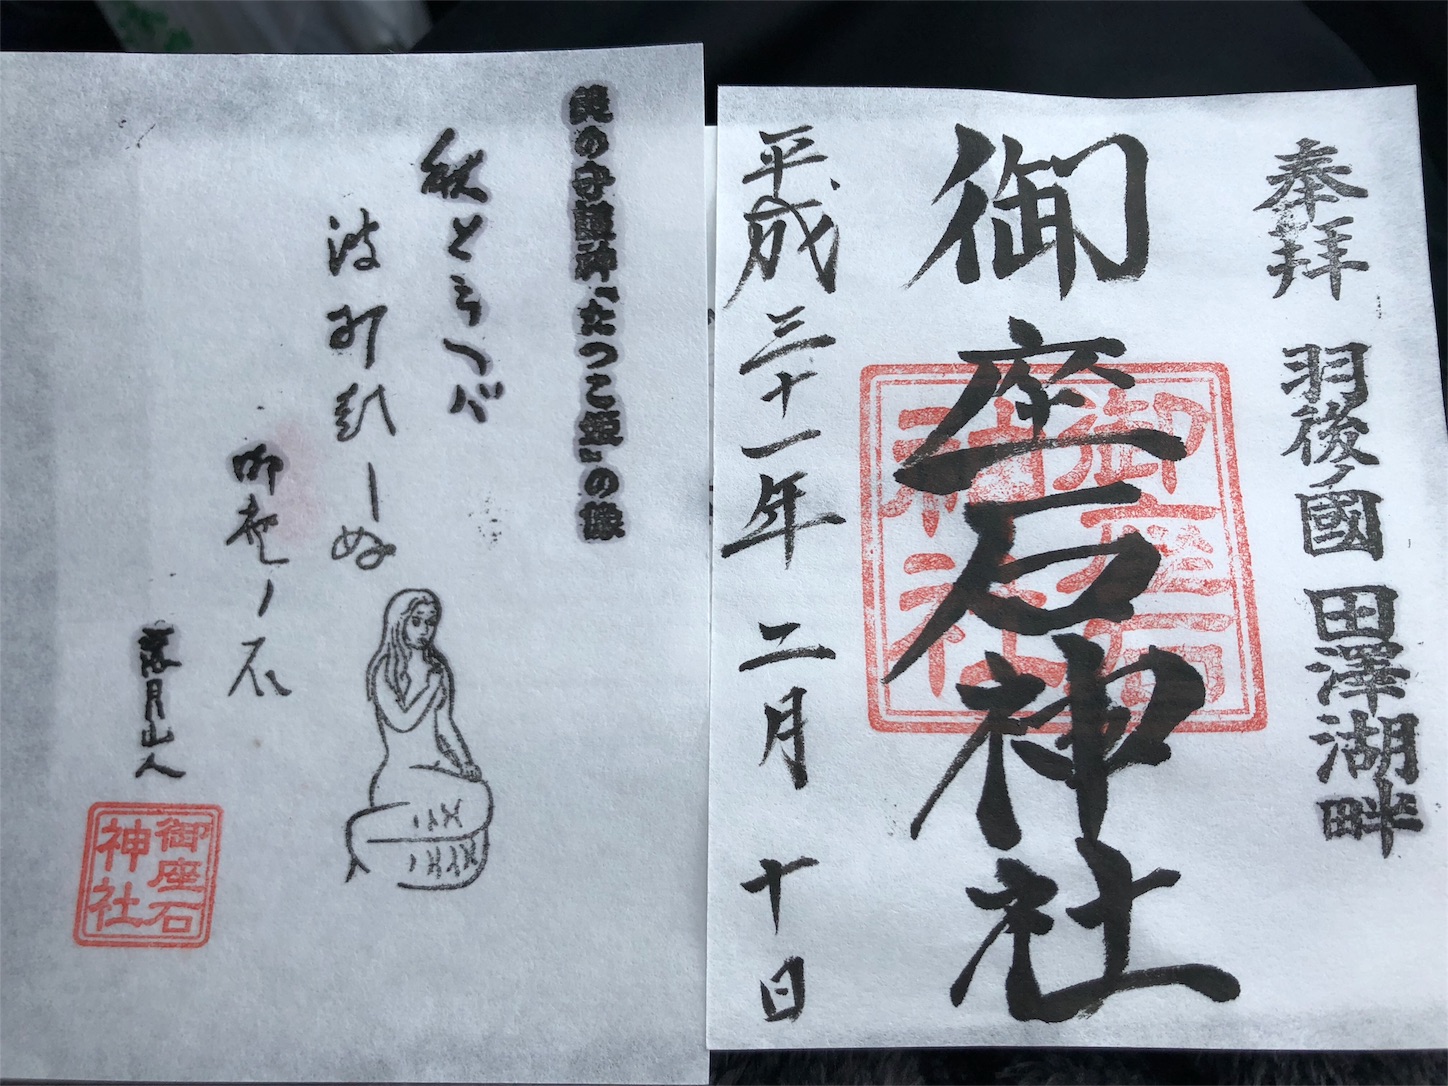 奉拝 羽後ノ國 田澤湖畔
御座石神社
御座石
神社
平成三十一年 二月 十日
美の守護神「たつこ姫」の像
秋とらへバ
波打しぬ
御座ノ石
落月山人
御座石
神社